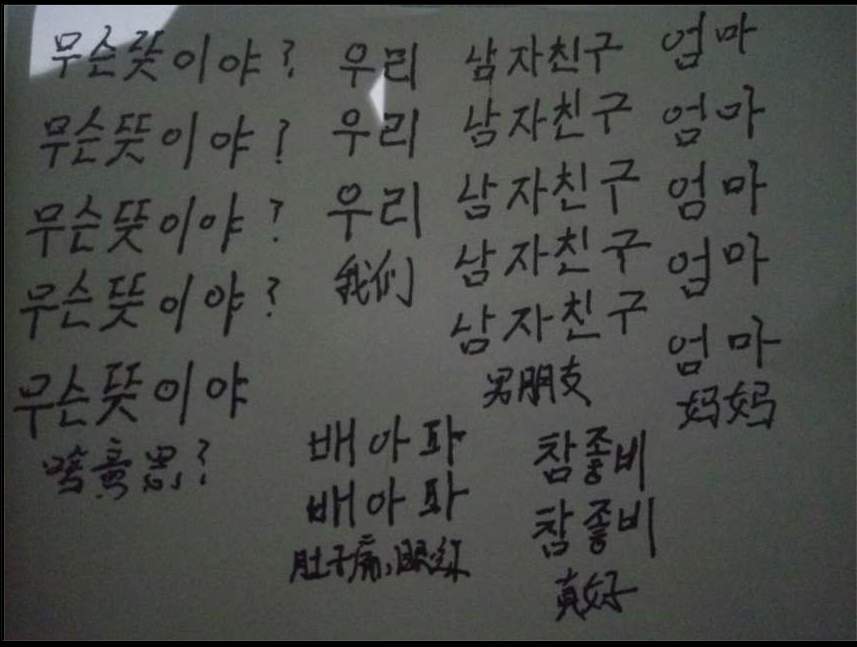 무슨뜻이야?
무슨뜻이야?
무슨뜻이야?
무슨뜻이야?
무슨뜻이야
啥意思?
우리
우리
우리
我们
남자친구
남자친구
남자친구
남자친구
남자친구
男朋友
엄마
엄마
엄마
엄마
엄마
妈妈
배아파
배아파
肚子痛,眼红
참좋비
참좋비
真好